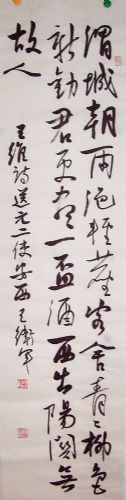 渭城朝雨浥輕塵客舍青々柳色
新勸君更盡一盃酒西出陽關無
故人
王維詩送元二使安西 王衛軍